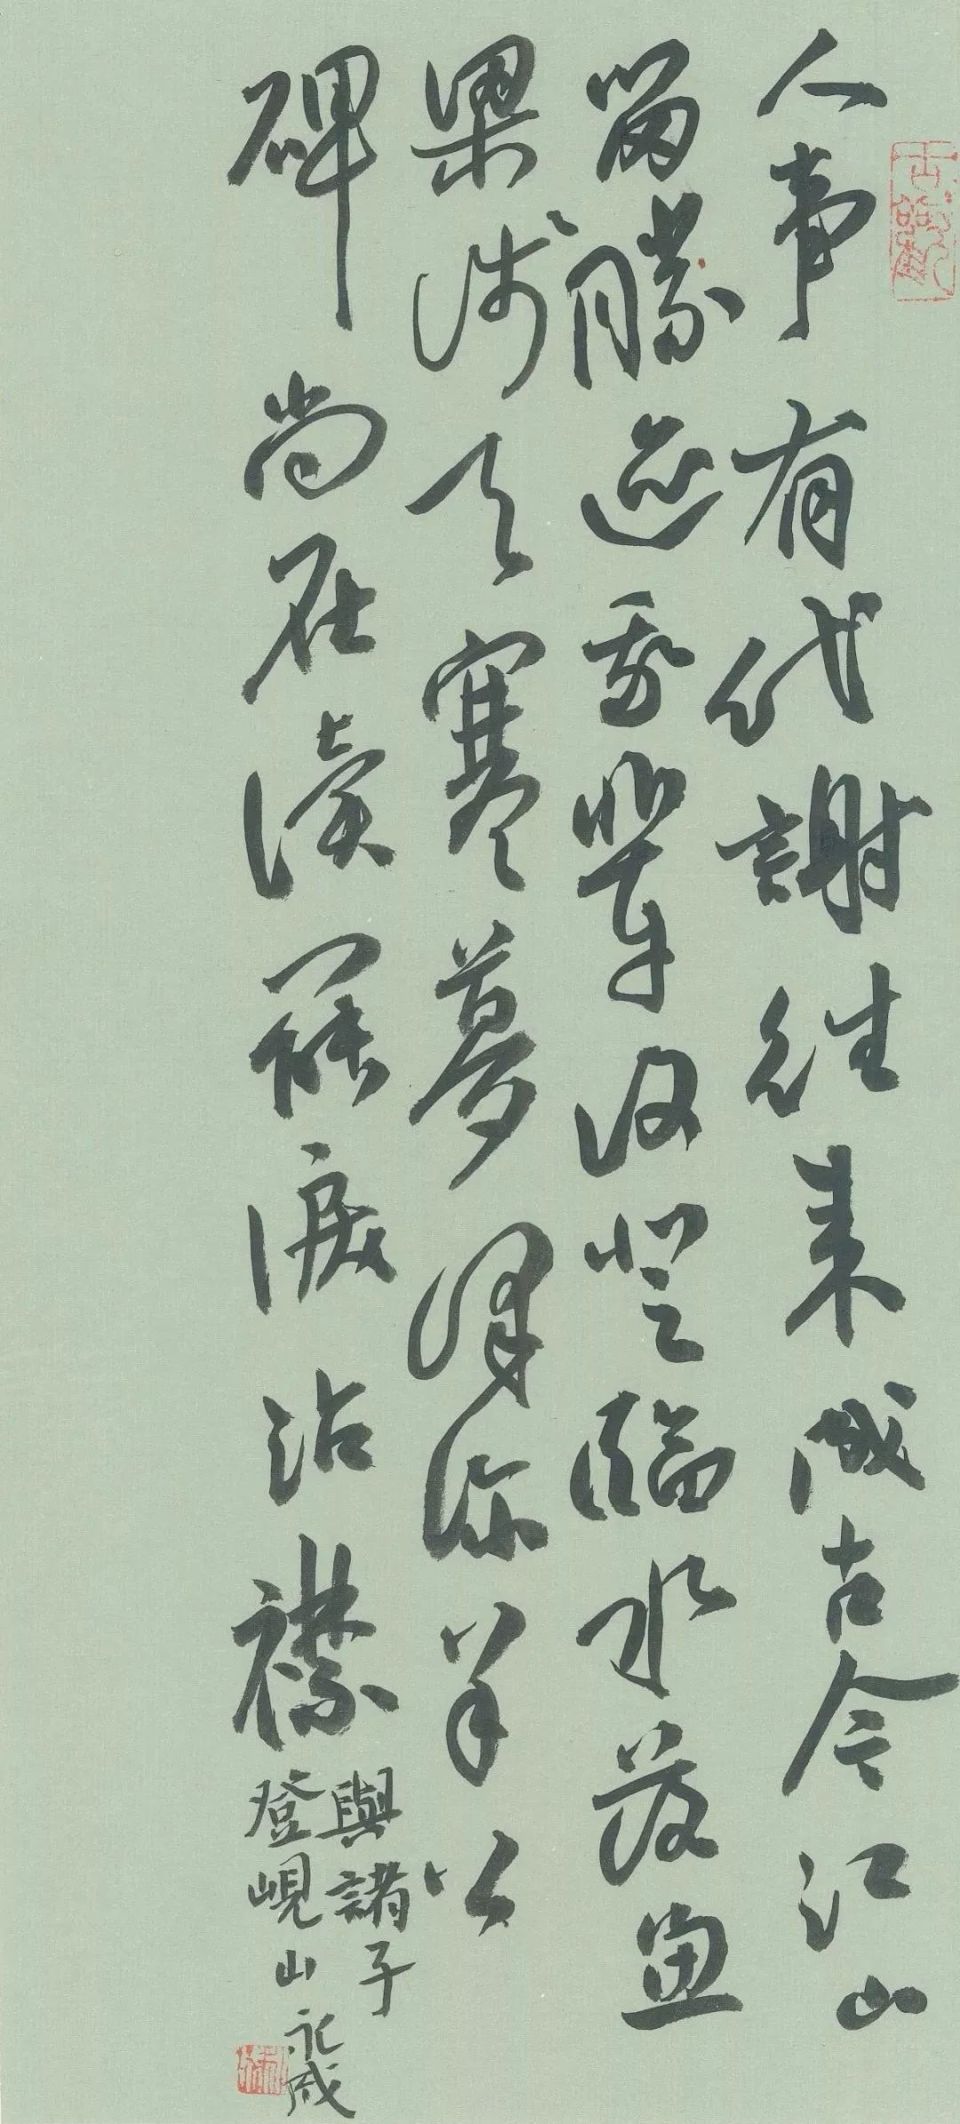 人事有代謝往来成古今江山
留勝迹我輩復登臨水落魚
梁淺天寒夢澤深羊公
碑尚在讀罷淚沾襟
與諸子
登峴山